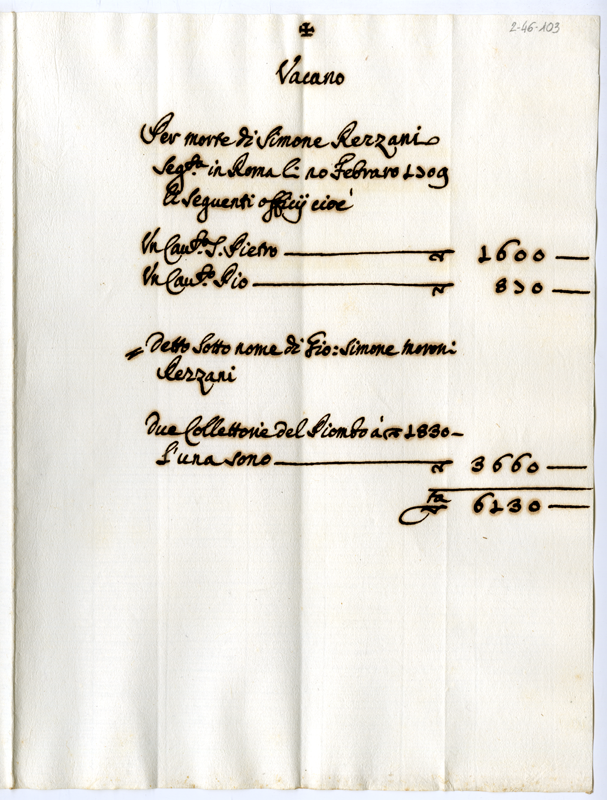 2-46-103
✠
Vacano
Per morte di Simone Rezzani
seg.ta in Roma li Febraro 1709
Li seguenti officij cioè
Un Cau.to S. Pietro — 1600 —
Un Cau.to Pio — 870 —
Detto sotto nome di Gio: Simone Moroni
Rezzani
Due Collettorie del Piombo à 1830 —
l'una sono — 3660 —
6130 —